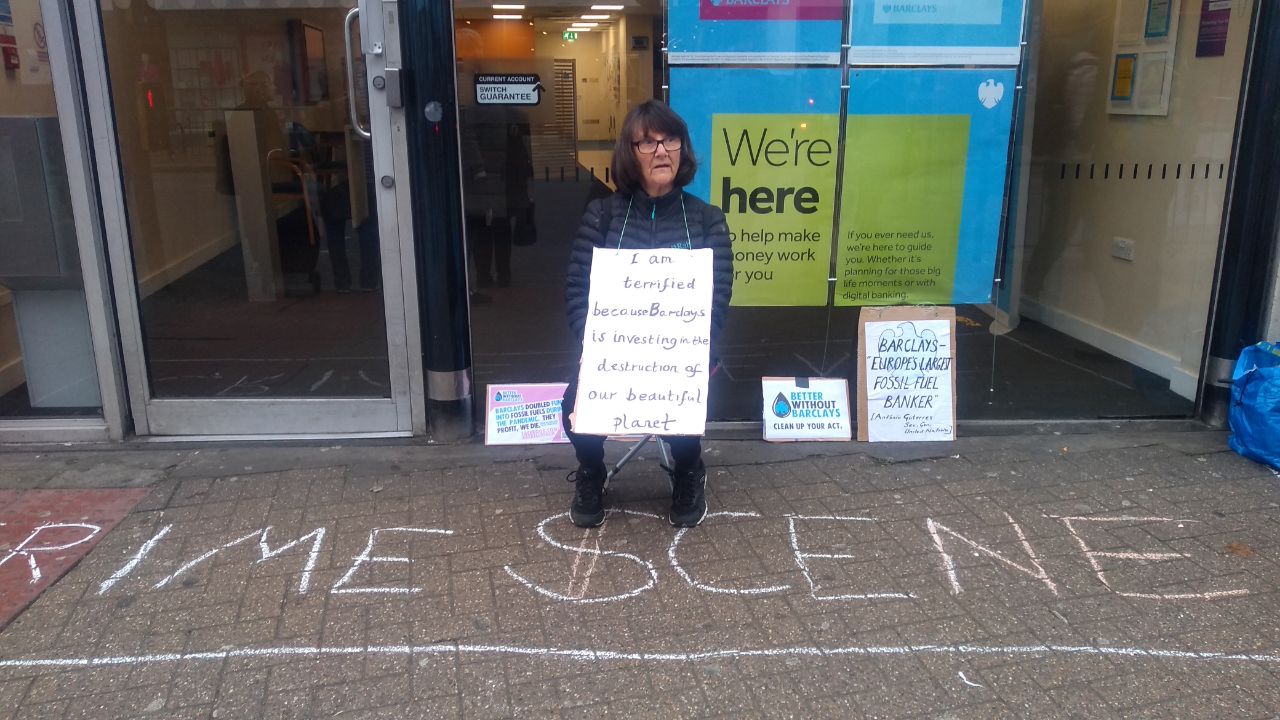 BARCLAYS
BARCLAYS
CURRENT ACCOUNT
SWITCH
GUARANTEE
We're
here
to help make
money work
for you
If you ever need us,
we're here to guide
you. Whether it's
planning for those big
life moments or with
digital banking.
I am
terrified
because Barclays
is investing in the
destruction of
our beautiful
planet
BETTER
WITHOUT
BARCLAYS
BARCLAYS DOUBLED
INTO FOSSIL FUELS
THE PANDEMIC. THEY
PROFIT, WE DIE.
BETTER
WITHOUT
BARCLAYS
CLEAN UP YOUR ACT.
BARCLAYS-
"EUROPE'S LARGEST
FOSSIL FUEL
BANKER"
[António Guterres
Sec. Gen.
United Nations]
RIME $CENE